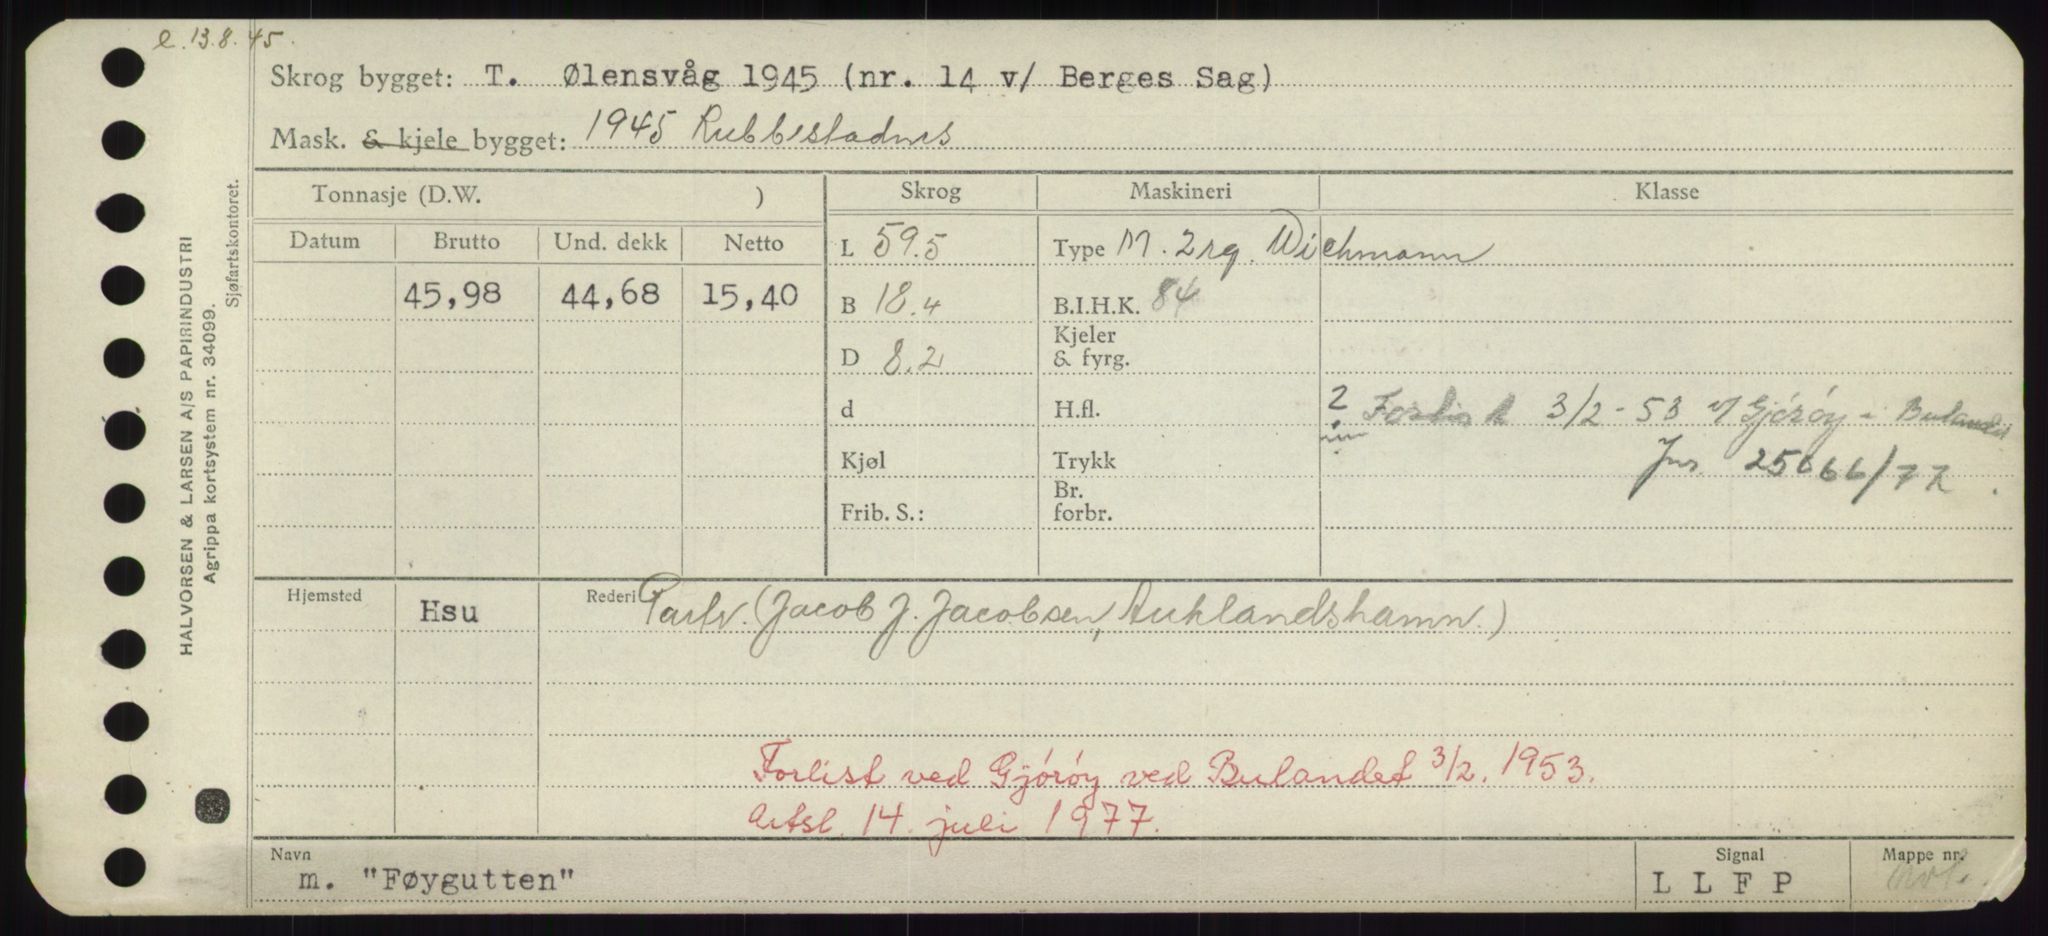 e. 13.8.45.
Skrog bygget: T. Ølensvåg 1945 (nr. 14 v/ Berges Sag)
Mask. & kjele bygget: 1945 Rubbestadnes
Tonnasje (D.W. ) Skrog Maskineri Klasse
Datum Brutto Und. dekk Netto L 59.5 Type M. 2 Wichmann
45,98 44,68 15,40 B 18.4 B.I.H.K. 84
D 8.2 Kjeler & fyrg.
d H.fl. 2 Forlist 3/2-53 v/ Gjörøy - Bulandet
Kjøl Trykk Jnr 25666/77.
Frib. S.: Br. forbr.
Hjemsted Hsu Rederi Partr. (Jacob J. Jacobsen, Auklandshamn.)
Forlist ved Gjörøy ved Bulandet 3/2. 1953.
14. juli 1977.
Navn Signal Mappe nr.
m. "Føygutten" L L F P
HALVORSEN & LARSEN A/S PAPIRINDUSTRI
Agrippa kortsystem nr. 34099.
Sjøfartskontoret.